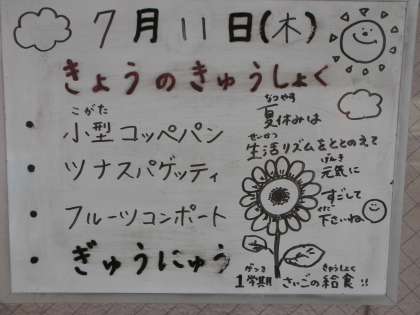 7月11日(木)
きょうのきゅうしょく
こがた
・小型コッペパン
・ツナスパゲッティ
・フルーツコンポート
・ぎゅうにゅう
なつやす
夏休みは
せいかつ
生活リズムをととのえて
げんき
元気に
すごして
くだ
下さいね
がっき
1学期
きゅうしょく
さいごの給食!!